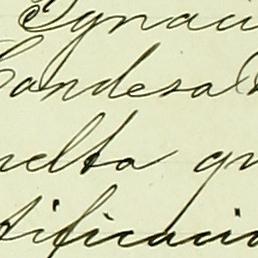 Ignaci
Candesa
uelta qu
tificacio